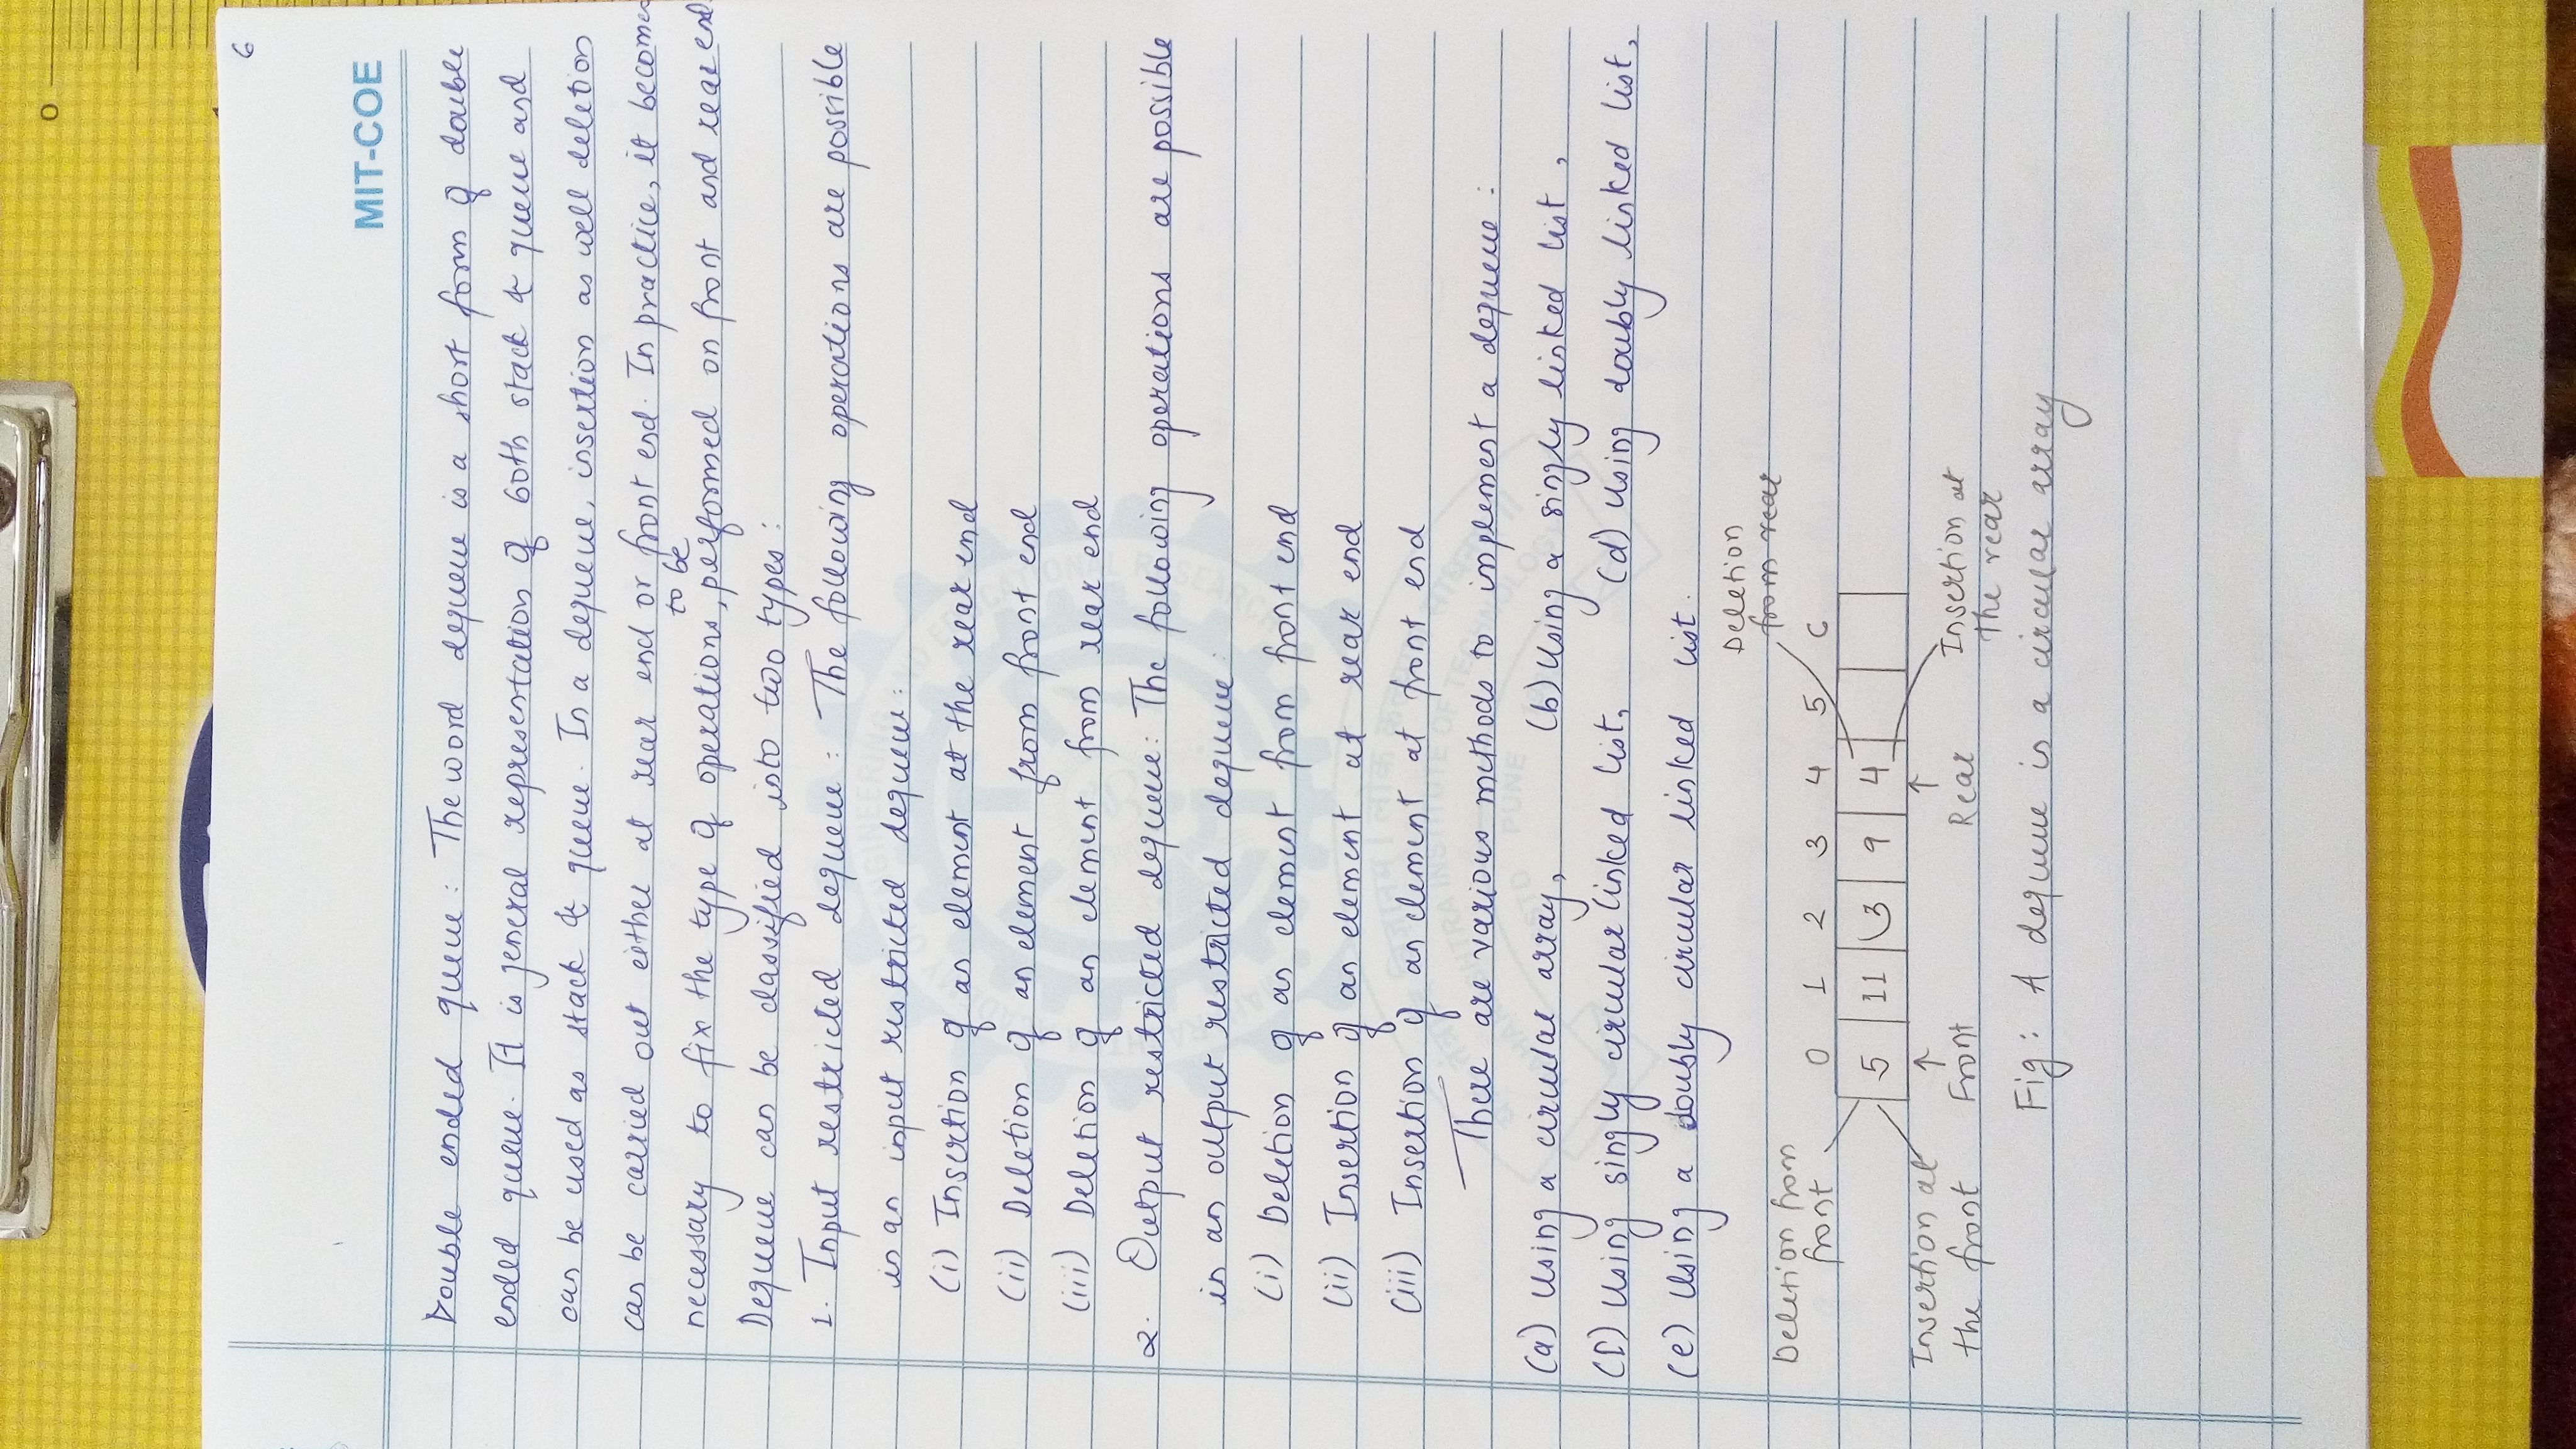 0
6
MIT-COE
Double ended queue: The word dequeue is a short form of double
ended queue. It is general representation of both stack & queue and
can be used as stack & queue. In a dequeue, insertion as well deletion
can be carried out either at rear end or front end. In practice, it becomes
to be
necessary to fix the type of operations, performed on front and rear end.
Dequeue can be classified into two types:
1. Input restricted dequeue: The following operations are possible
in an input restricted dequeue:
(i) Insertion of an element at the rear end
(ii) Deletion of an element from front end
(iii) Deletion of an element from rear end
2. Output restricted dequeue: The following operations are possible
in an output restricted dequeue:
(i) Deletion of an element from front end
(ii) Insertion of an element at rear end
(iii) Insertion of an element at front end
There are various methods to implement a dequeue:
(a) Using a circular array, (b) Using a singly linked list,
Using singly circular linked list, (d) Using doubly linked list,
(e) Using a doubly circular linked list.
Deletion
from rear
Deletion from
front
0 1 2 3 4 5 6
5 11 3 9 4
Insertion at
the front
Front
Rear
Insertion at
the rear
Fig: A dequeue in a circular array